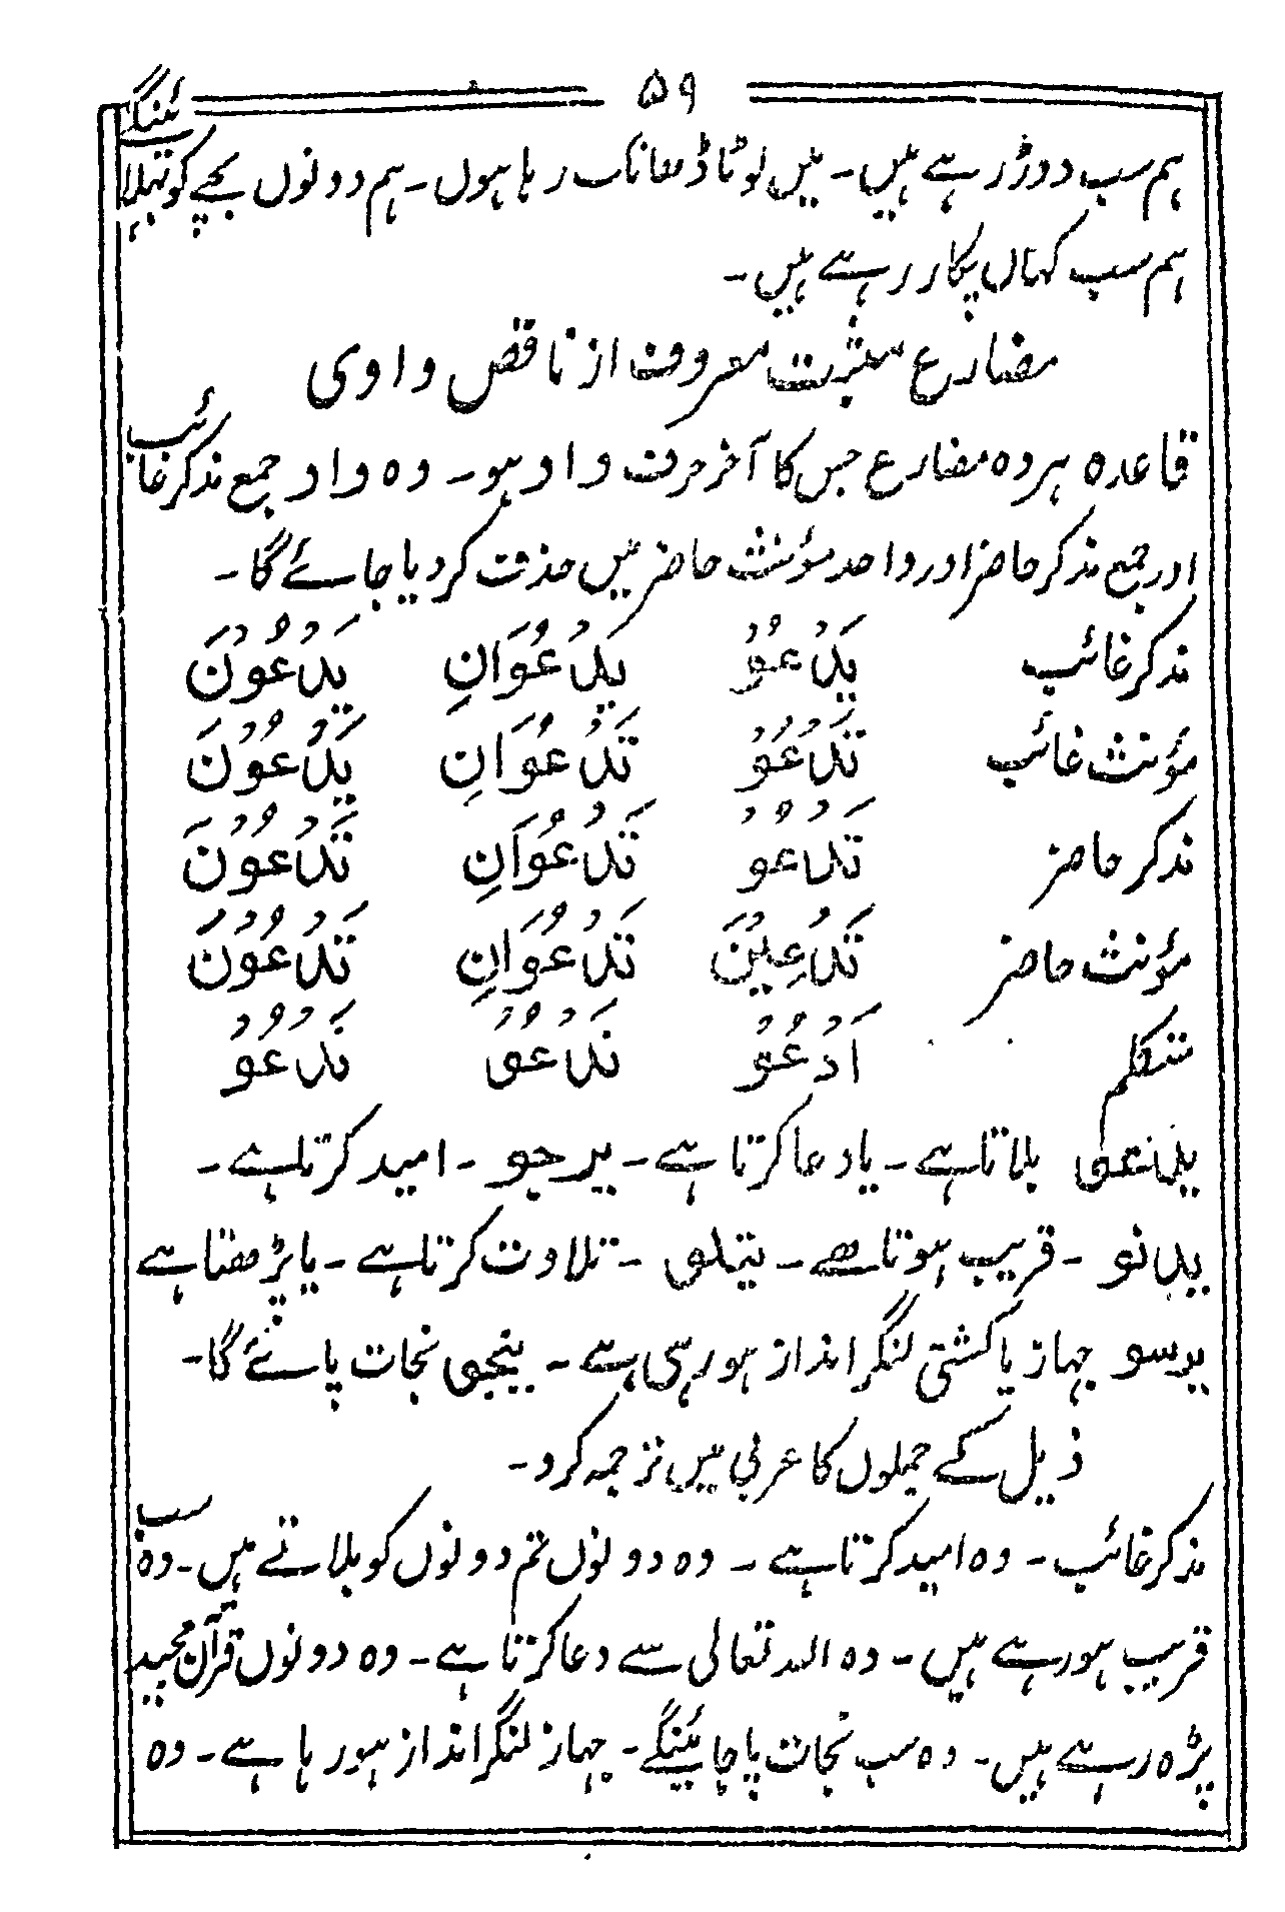 ۵۹
ہم سب دوڑ رہے ہیں۔ میں لوٹا ڈھانک رہا ہوں۔ ہم دونوں بچے کو نہلائینگے
ہم سب کہاں پکار رہے ہیں۔
مضارع مثبت معروف از ناقص واوی
قاعدہ ہر وہ مضارع جس کا آخر حرف واو ہو۔ وہ واو جمع مذکر غائب
اور جمع مذکر حاضر اور واحد مؤنث حاضر میں حذف کر دیا جائے گا۔
مذکر غائب يَدْعُوْ يَدْعُوَانِ يَدْعُوْنَ
مؤنث غائب تَدْعُوْ تَدْعُوَانِ يَدْعُوْنَ
مذکر حاضر تَدْعُوْ تَدْعُوَانِ تَدْعُوْنَ
مؤنث حاضر تَدْعِيْنَ تَدْعُوَانِ تَدْعُوْنَ
متکلم اَدْعُوْ نَدْعُوْ نَدْعُوْ
يدعو بلاتا ہے۔ یا دعا کرتا ہے۔ يرجو۔ امید کرتا ہے۔
يدنو۔ قریب ہوتا ھے۔ يتلو۔ تلاوت کرتا ہے۔ یا پڑھتا ہے
يرسو جہاز یا کشتی لنگر انداز ہو رہی ہے۔ ينجو نجات پائے گا۔
ذیل کے جملوں کا عربی میں ترجمہ کرو۔
مذکر غائب۔ وہ امید کرتا ہے۔ وہ دونوں تم دونوں کو بلاتے ہیں۔ وہ سب
قریب ہو رہے ہیں۔ وہ اللہ تعالی سے دعا کرتا ہے۔ وہ دونوں قرآن مجید
پڑھ رہے ہیں۔ وہ سب نجات پا جائینگے۔ جہاز لنگر انداز ہو رہا ہے۔ وہ